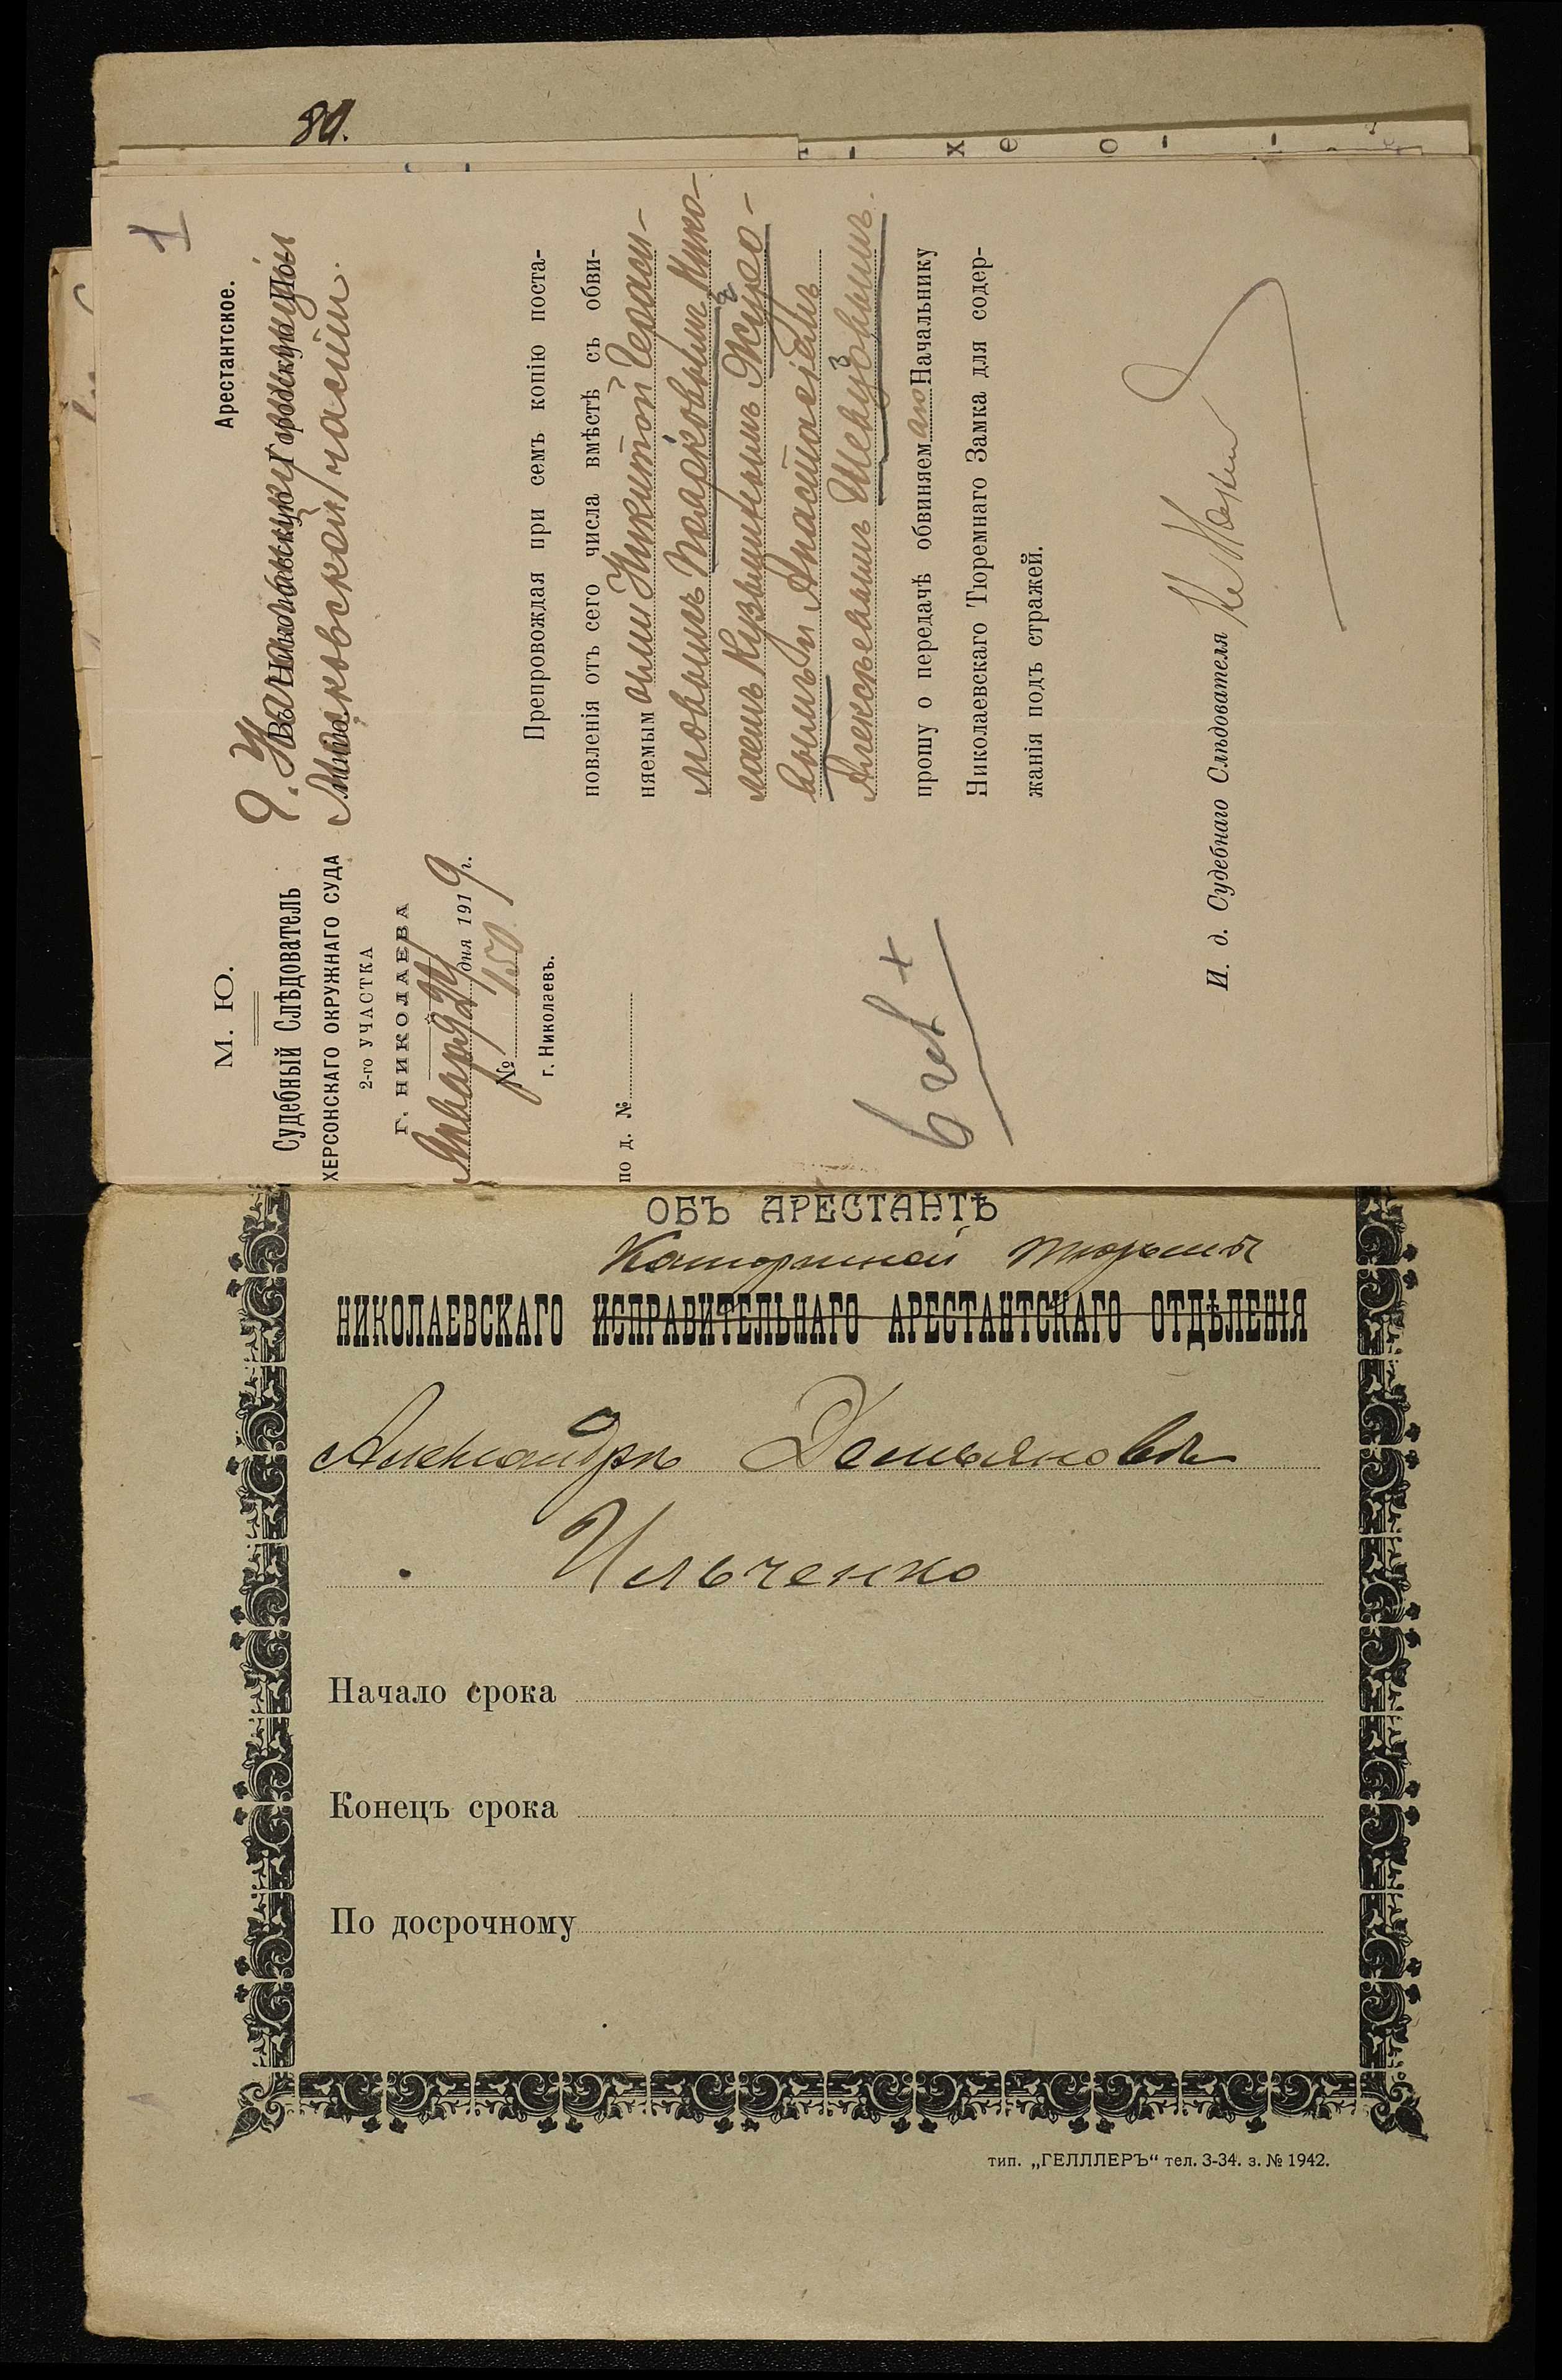 80.
1
Арестантское.
М. Ю.
Судебный Слѣдователь
ХЕРСОНСКАГО ОКРУЖНАГО СУДА
2-го УЧАСТКА
Г. НИКОЛАЕВА
Января дня 1919 г.
№ 150
г. Николаевъ.
по д. №
Московской части.
Препровождая при семъ копію поста-
новленія отъ сего числа вмѣстѣ съ обви-
няемым Никитой Гераси-
мовымъ
и Анастасіемъ
Алексѣевымъ
прошу о передачѣ обвиняем Начальнику
Николаевскаго Тюремнаго Замка для содер-
жанія подъ стражей.
И. д. Судебнаго Слѣдователя
ОБЪ АРЕСТАНТѢ
Каторжной тюрьмы
НИКОЛАЕВСКАГО ИСПРАВИТЕЛЬНАГО АРЕСТАНТСКАГО ОТДѢЛЕНІЯ
Александръ Демьяновъ
Ильченко
Начало срока
Конецъ срока
По досрочному
тип. „ГЕЛЛЛЕРЪ“ тел. 3-34. з. № 1942.